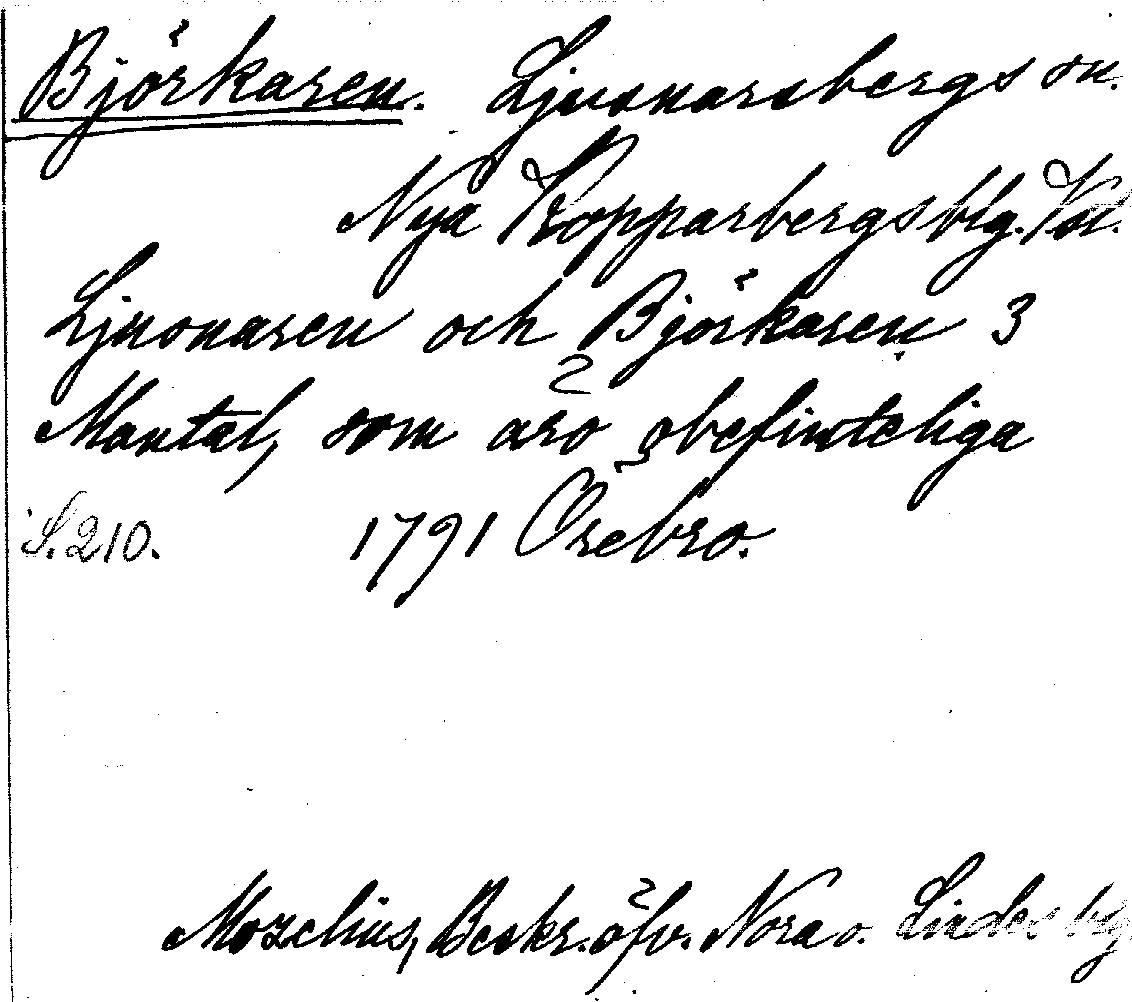 Björkaren. Ljusnarsbergs sn.
Nya Kopparbergs blg.
Ljusnaren och Björkaren 3
Mantal, som äro obefinteliga
S. 210. 1791 Örebro.
Morelius, Beskr. öfv. Nora o. Lindes blg.